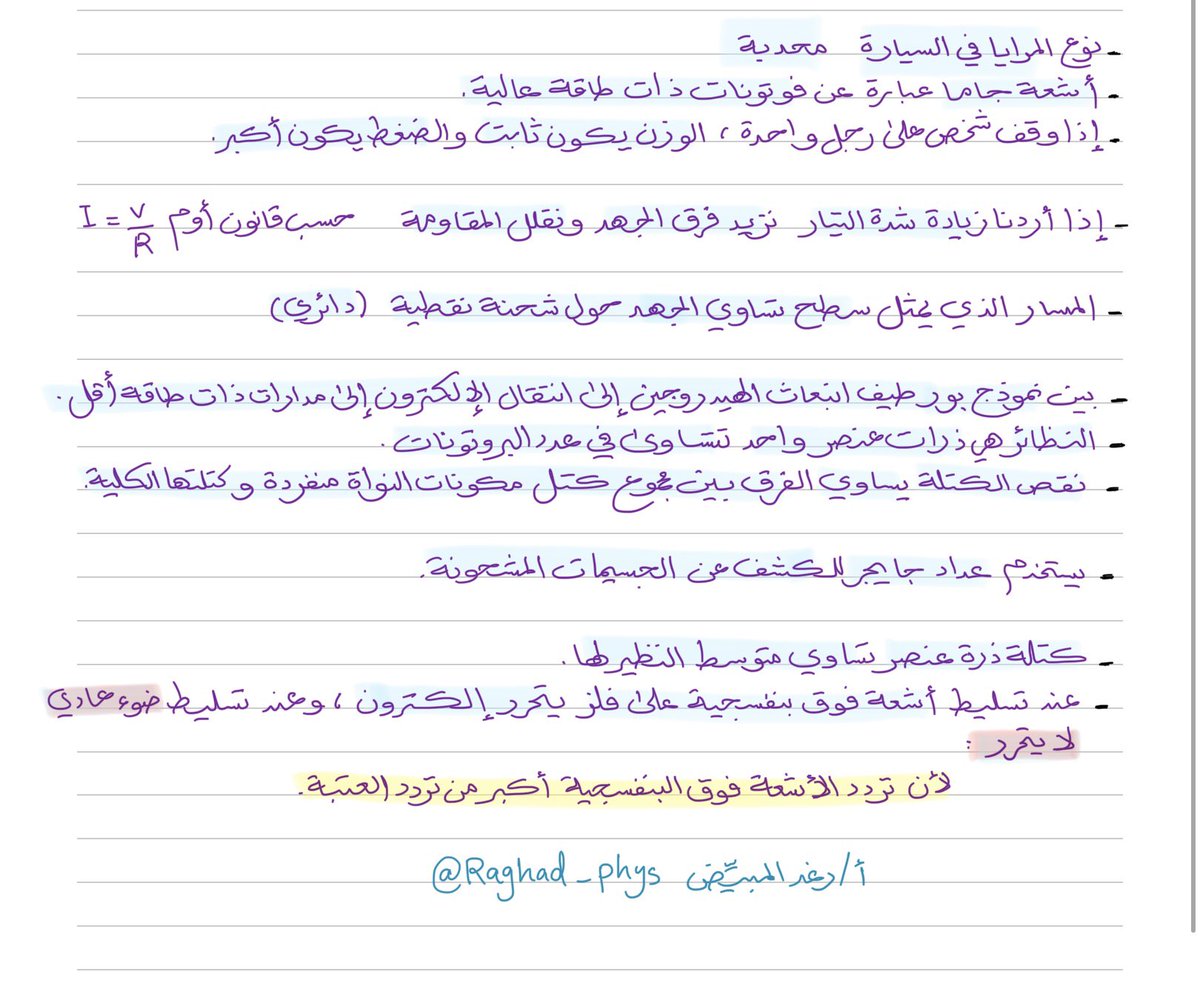 - نوع المرايا في السيارة محدبة
- أشعة جاما عبارة عن فوتونات ذات طاقة عالية.
- إذا وقف شخص على رجل واحدة ، الوزن يكون ثابت والضغط يكون أكبر.
- إذا أردنا زيادة شدة التيار نزيد فرق الجهد ونقلل المقاومة حسب قانون أوم I = V/R
- المسار الذي يمثل سطح تساوي الجهد حول شحنة نقطية (دائري)
- بين نموذج بور طيف انبعاث الهيدروجين إلى انتقال الإلكترون إلى مدارات ذات طاقة أقل.
- النظائر هي ذرات عنصر واحد تتساوى في عدد البروتونات.
- نقص الكتلة يساوي الفرق بين مجموع كتل مكونات النواة منفردة وكتلتها الكلية.
- يستخدم عداد جايجر للكشف عن الجسيمات المشحونة.
- كتلة ذرة عنصر تساوي متوسط النظير لها.
- عند تسليط أشعة فوق بنفسجية على فلز يتحرر إلكترون ، وعند تسليط ضوء عادي
لا يتحرر :
لأن تردد الأشعة فوق البنفسجية أكبر من تردد العتبة.
أ/رغد المبيّض @Raghad_phys